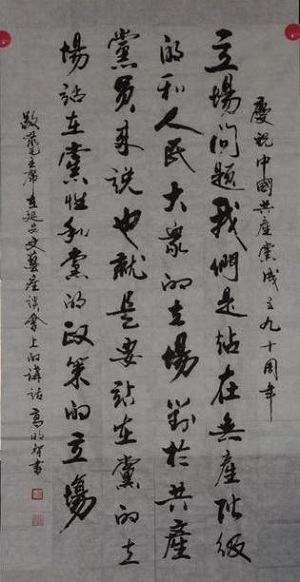 慶祝中國共產黨成立九十周年
立場問題我們是站在無產階級
的和人民大衆的立場對於共產
黨員來說也就是要站在黨的立
場站在黨性和黨的政策的立場
敬錄毛主席在延安文藝座談會上的講話 書